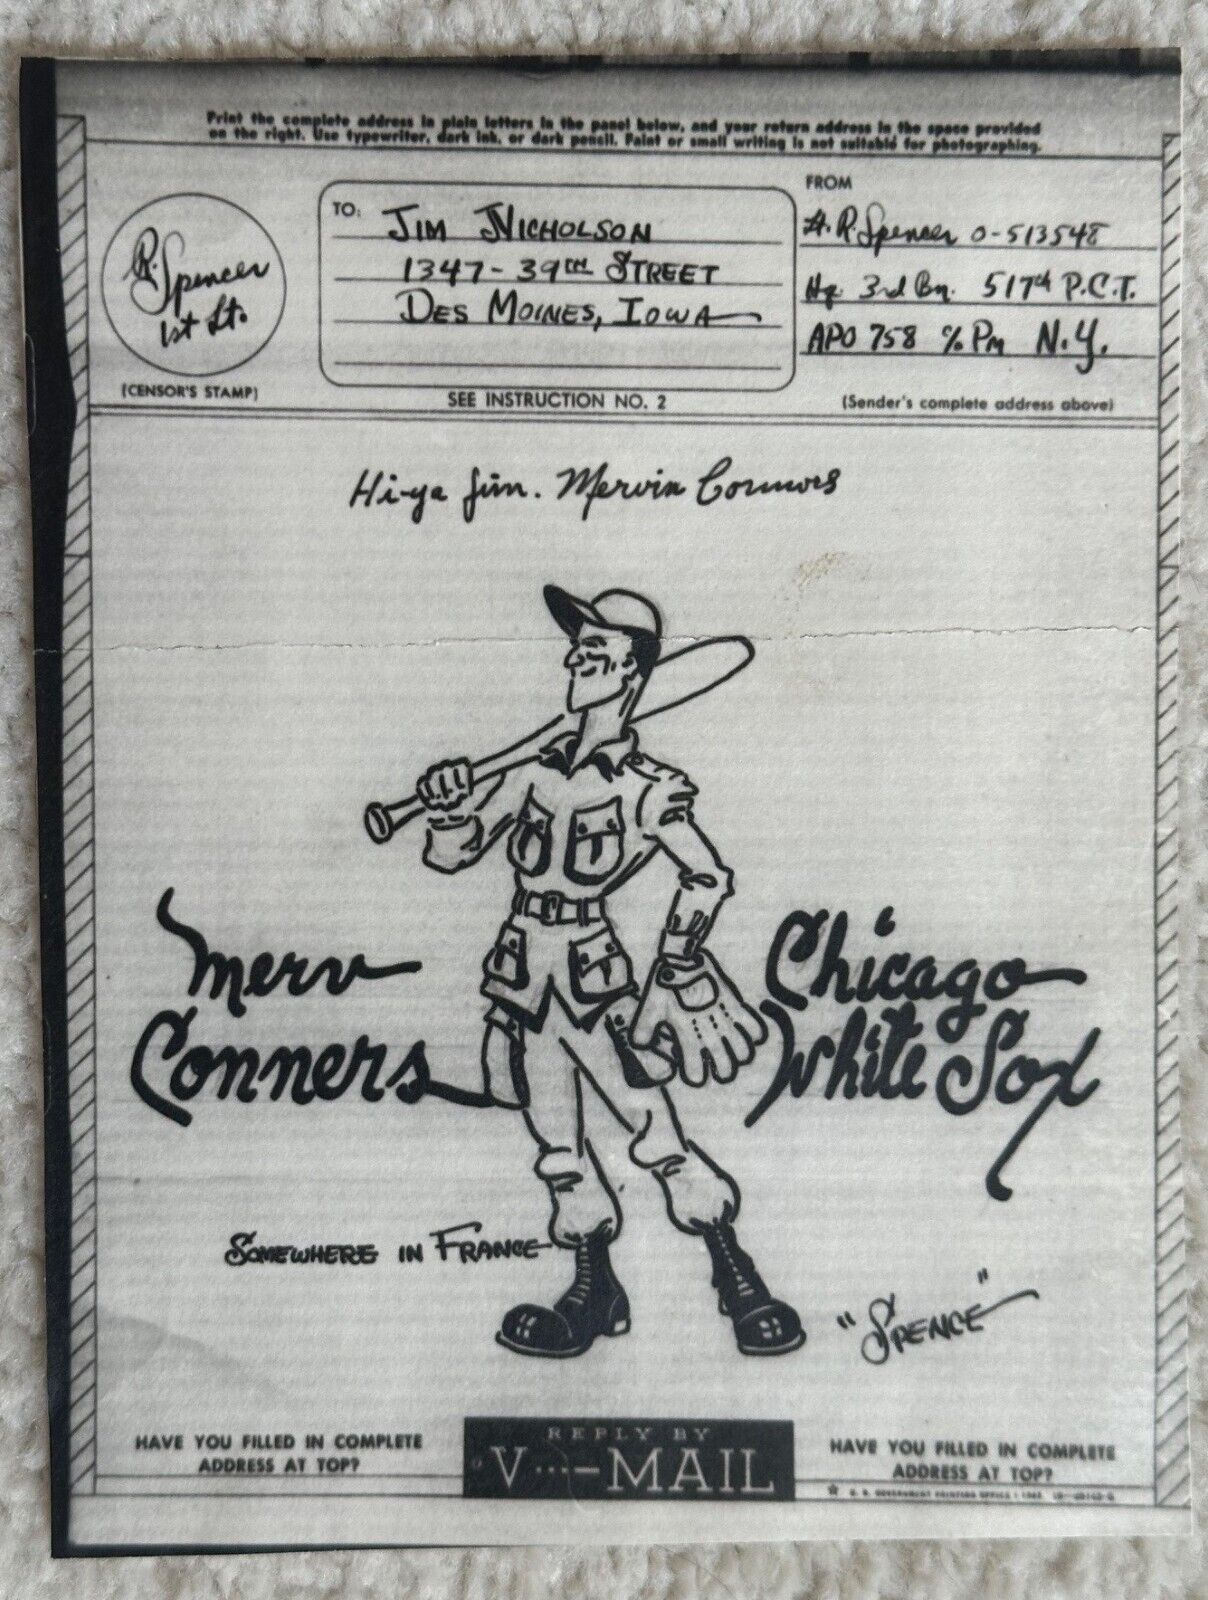 Print the complete address in plain letters in the panel below, and your return address in the space provided
on the right. Use typewriter, dark ink, or dark pencil. Faint or small writing is not suitable for photographing.
R. Spencer
1st Lt.
(CENSOR'S STAMP)
TO:
JIM NICHOLSON
1347-39TH STREET
DES MOINES, IOWA
SEE INSTRUCTION NO. 2
FROM
H. R. Spencer O-513548
Hq. 3rd Bn. 517th P.C.T.
APO 758 % Pm N.Y.
(Sender's complete address above)
Hi-ya Jim. Mervin Connors
Merv
Conners
Chicago
White Sox
SOMEWHERE IN FRANCE
"SPENCE"
HAVE YOU FILLED IN COMPLETE
ADDRESS AT TOP?
REPLY BY
V···—MAIL
HAVE YOU FILLED IN COMPLETE
ADDRESS AT TOP?
☆ U. S. GOVERNMENT PRINTING OFFICE :